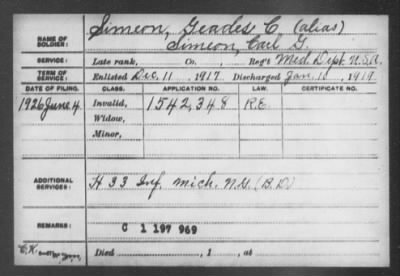 Simeon, Geades C. (alias)
NAME OF SOLDIER: Simeon, Carl G.
SERVICE: Late rank, Co., Reg't Med. Dept. U.S.A.
TERM OF SERVICE: Enlisted Dec. 11, 1917. Discharged Jan. 10, 1919.
DATE OF FILING. CLASS. APPLICATION NO. LAW. CERTIFICATE NO.
1926 June 4 Invalid, 1542,348 R.E.
Widow,
Minor,
ADDITIONAL SERVICES: H 33 Inf. Mich. N.G. (B.D.)
REMARKS: C 1 197 969
Died , 1 , at